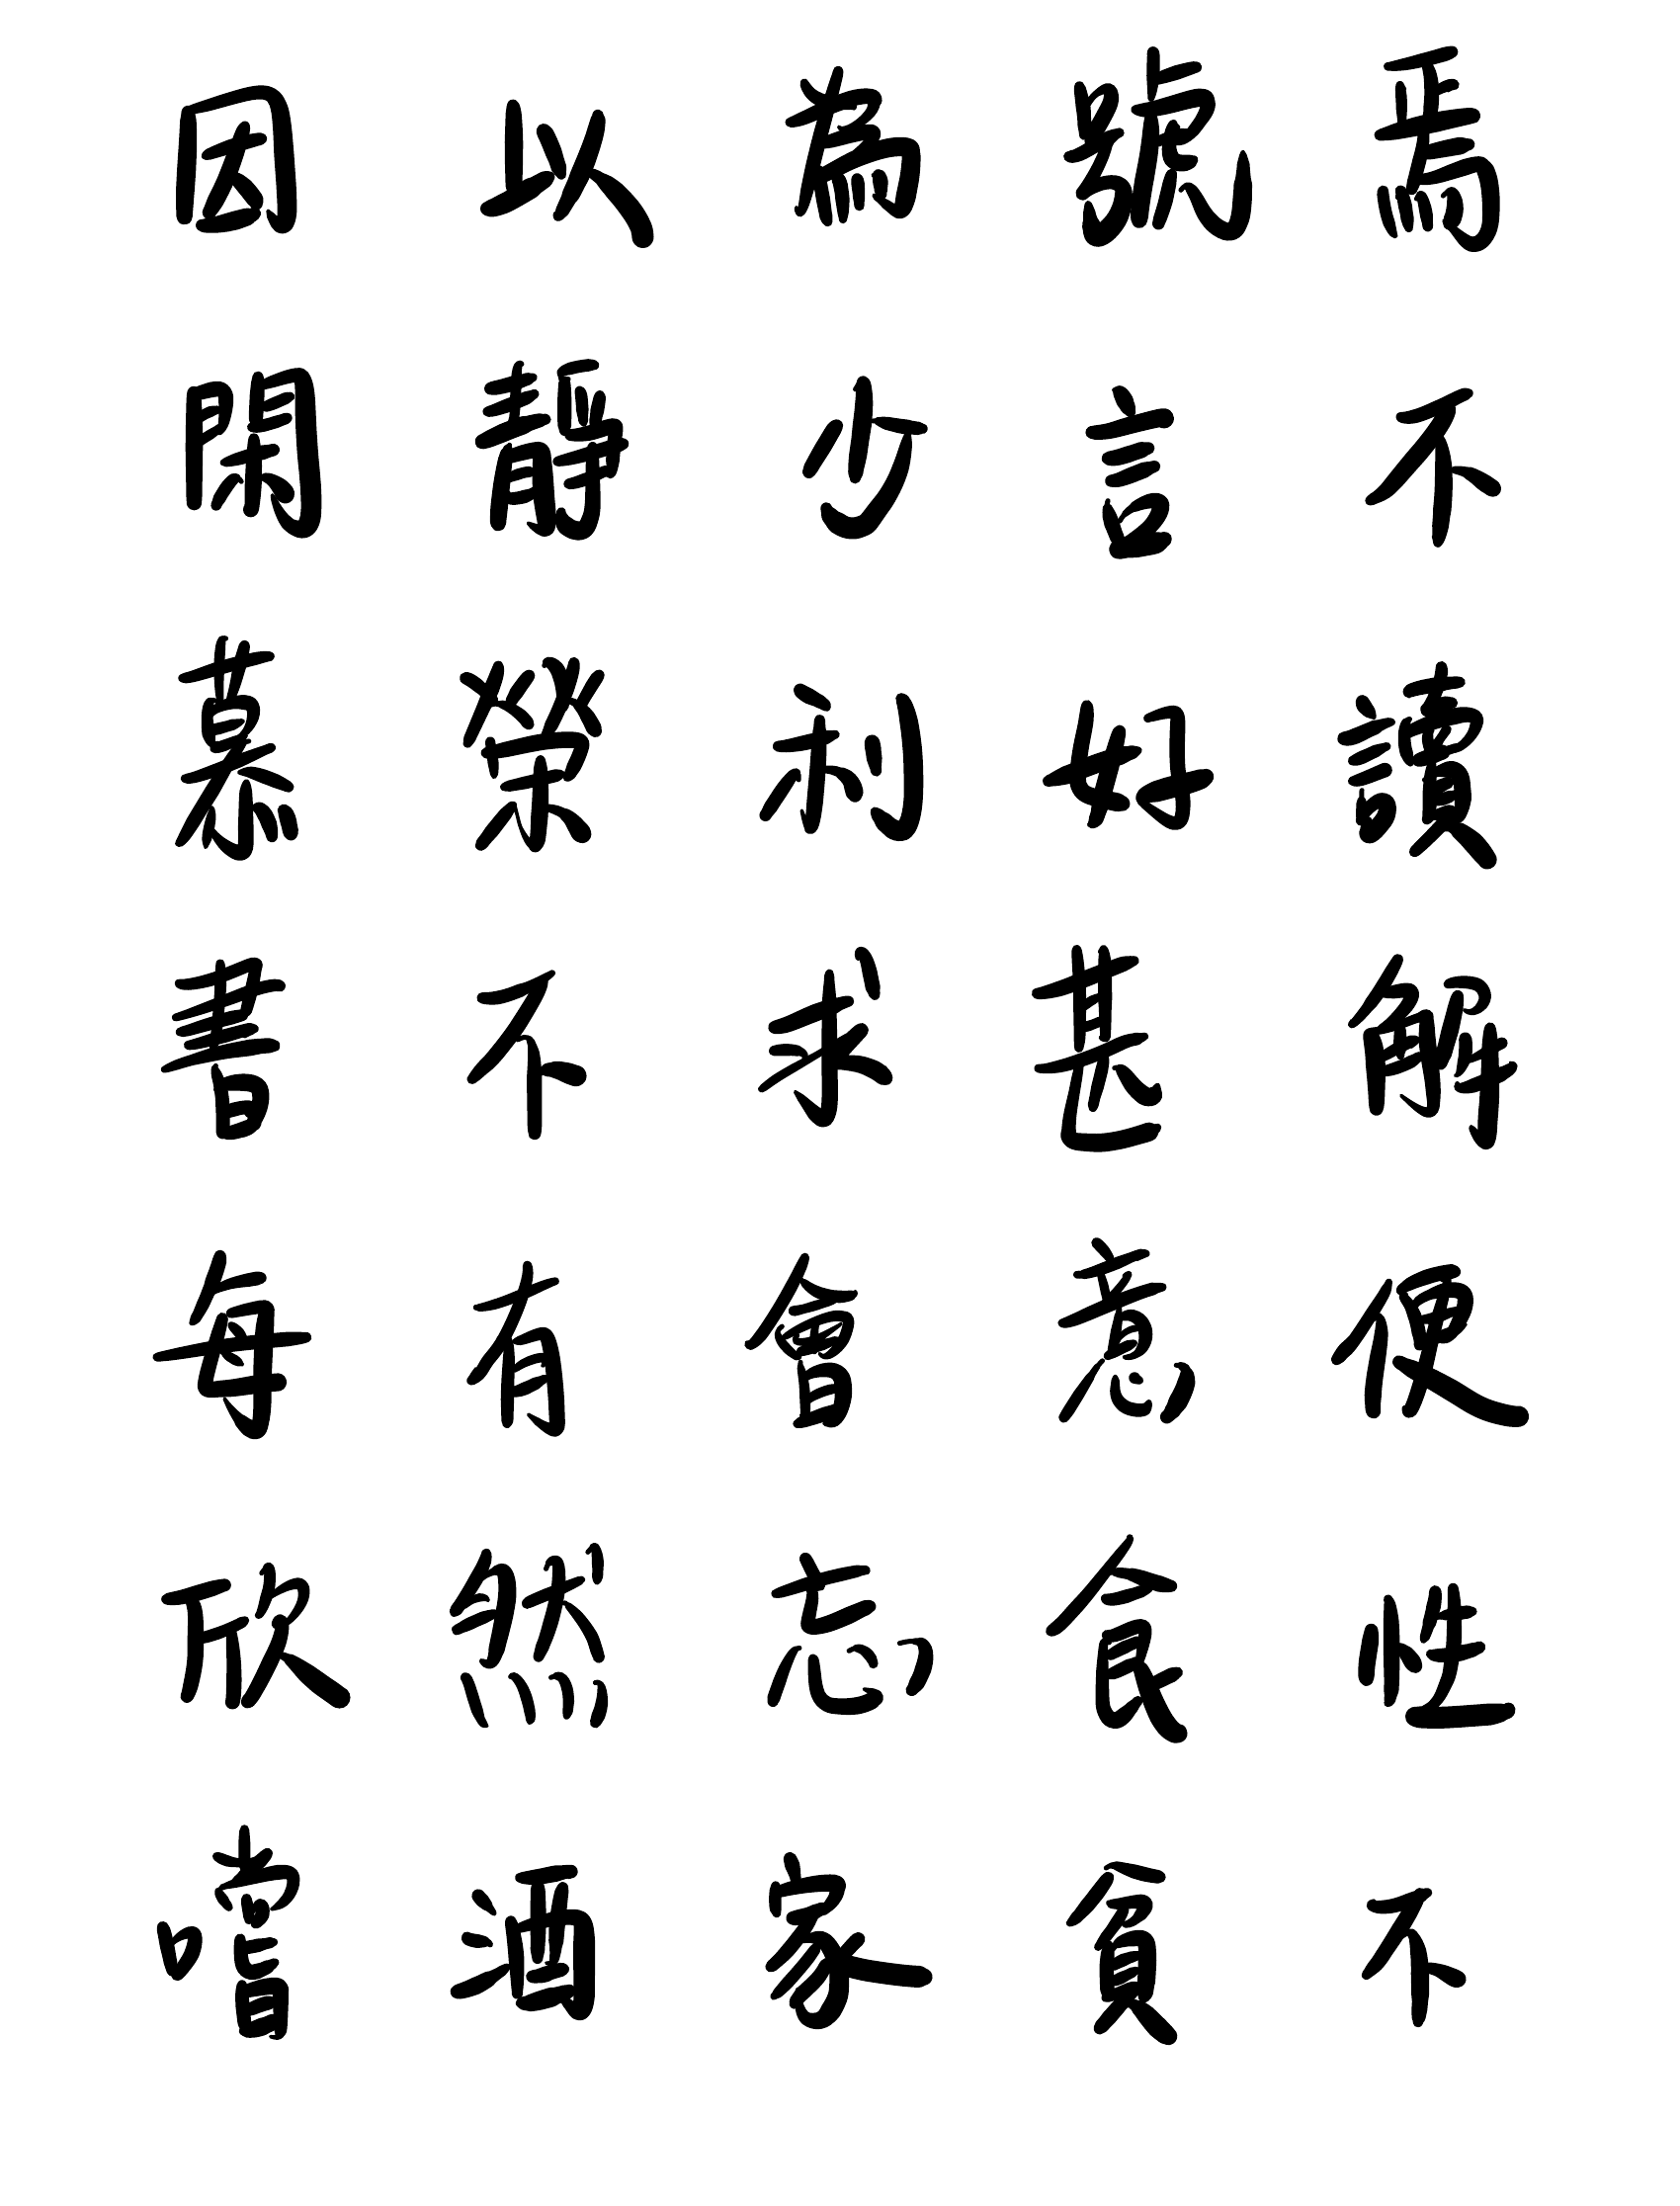 因以為號焉
閑靜少言不
慕榮利好讀
書不求甚解
每有會意便
欣然忘食性
嚐酒家貧不